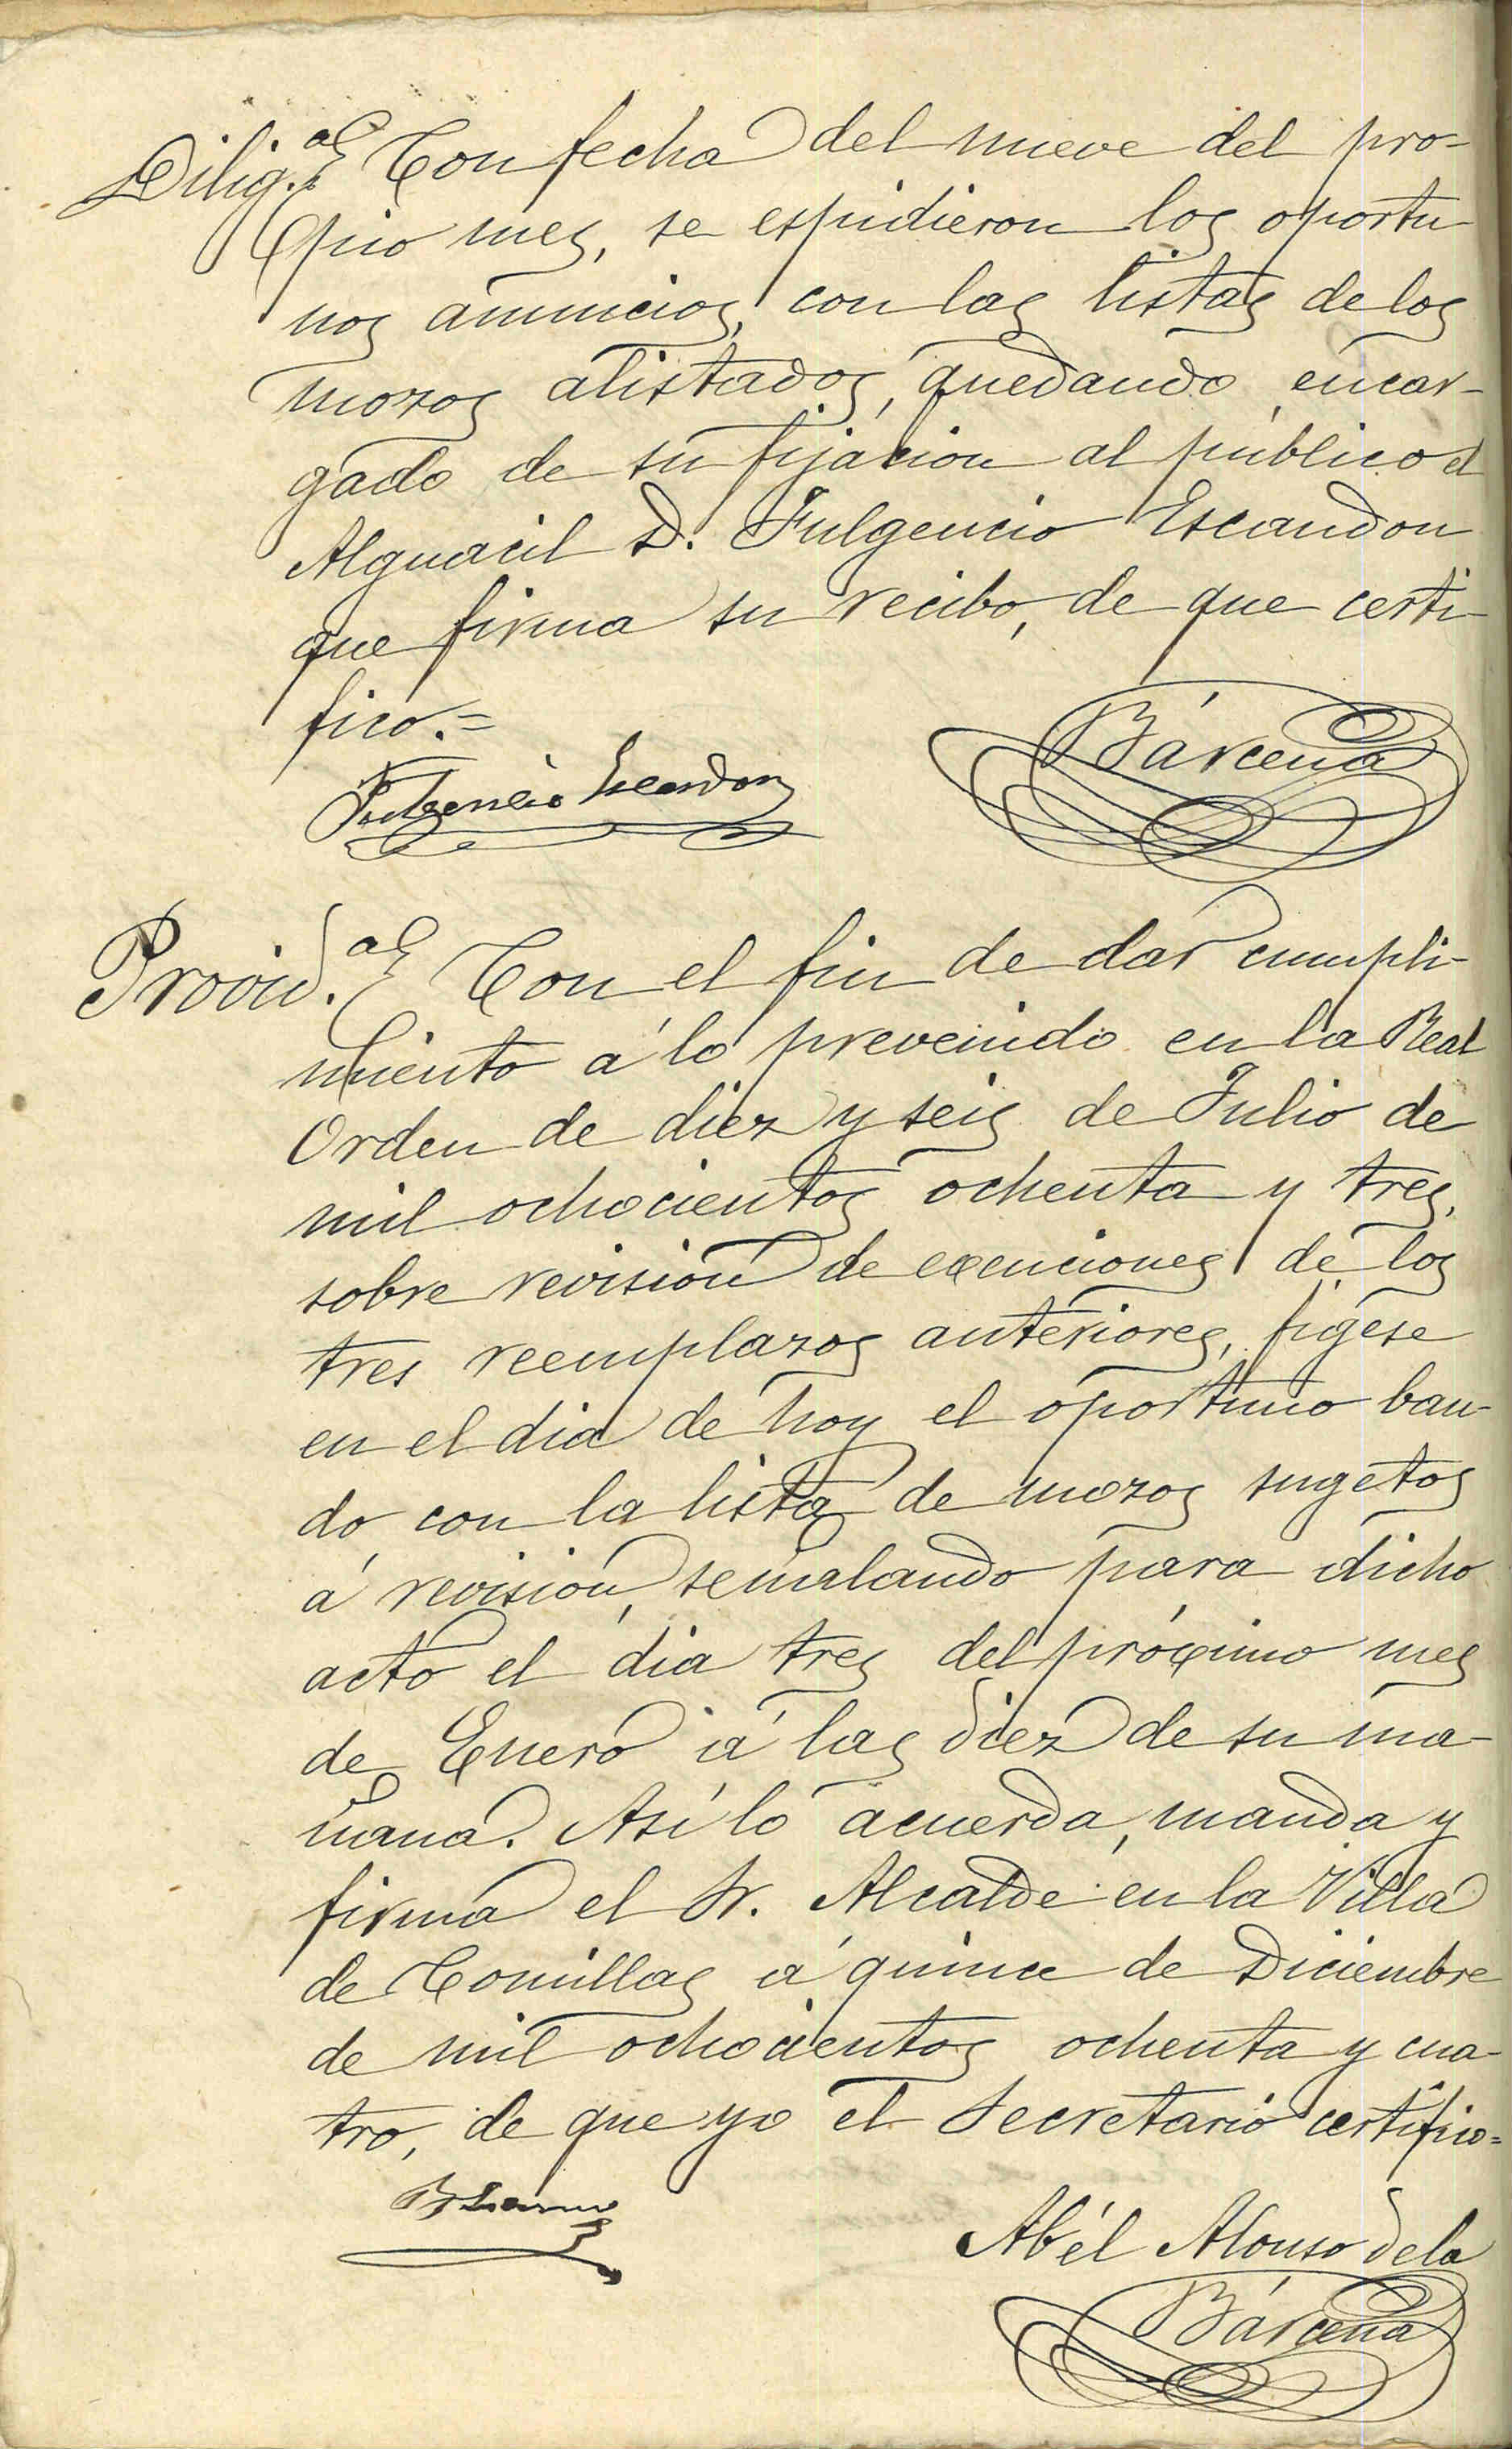 Dilig.ª Con fecha del nueve del pro-
pio mes, se espidieron los oportu-
nos anuncios, con las listas de los
mozos alistados, quedando encar-
gado de su fijacion al público el
Alguacil D. Fulgencio Escandon
que firma su recibo, de que certi-
fico.=
Bárcena
Fulgencio Escandon
Provid.ª Con el fin de dar cumpli-
miento á lo prevenido en la Real
Orden de diez y seis de Julio de
mil ochocientos ochenta y tres,
sobre revisión de exenciones de los
tres reemplazos anteriores, fígese
en el dia de hoy el oportuno ban-
do, con la lista de mozos sugetos
á revisión, señalando para dicho
acto el dia tres del próximo mes
de Enero á las diez de su ma-
ñana. Así lo acuerda, manda y
firma el Sr. Alcalde en la Villa
de Comillas á quince de Diciembre
de mil ochocientos ochenta y cua-
tro, de que yo el Secretario certifico=
Abél Alonso de la
Bárcena